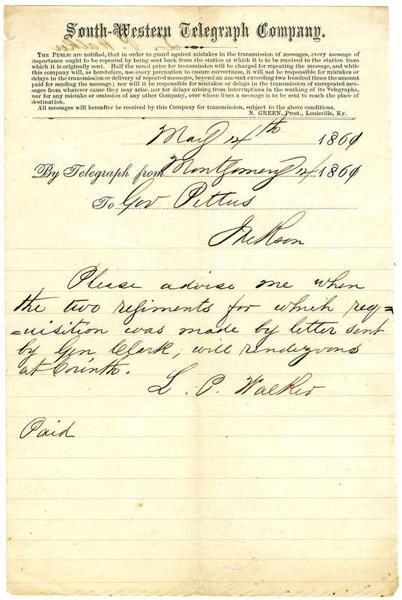 South-Western Telegraph Company.
THE PUBLIC are notified, that in order to guard against mistakes in the transmission of messages, every message of
importance ought to be repeated by being sent back from the station at which it is to be received to the station from
which it is originally sent. Half the usual price for transmission will be charged for repeating the message, and while
this company will, as heretofore, use every precaution to ensure correctness, it will not be responsible for mistakes or
delays in the transmission or delivery of repeated messages, beyond an amount exceeding two hundred times the amount
paid for sending the message; nor will it be responsible for mistakes or delays in the transmission of unrepeated mes-
sages from whatever cause they may arise, nor for delays arising from interruptions in the working of its Telegraphs,
nor for any mistake or omission of any other Company, over whose lines a message is to be sent to reach the place of
destination.
All messages will hereafter be received by this Company for transmission, subject to the above conditions.
N. GREEN, Prest., Louisville, Ky.
May 14th 1861
By Telegraph from Montgomery 14 1861
To Gov Pettus
Jackson
Please advise me when
the two regiments for which req=
=uisition was made by letter sent
by Gen Clark, will rendezvous
at Corinth.
L. P. Walker
Paid